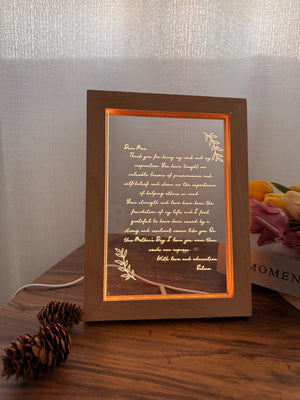 Dear Mom,
Thank you for being my rock and my
inspiration. You have taught me
valuable lessons of perseverance and
self-belief and shown me the importance
of helping others in need.
Your strength and love have been the
foundation of my life, and I feel
grateful to have been raised by such a
strong and resilient woman like you. On
this Mother's Day, I love you more than
words can express.
With love and admiration
MOMEN